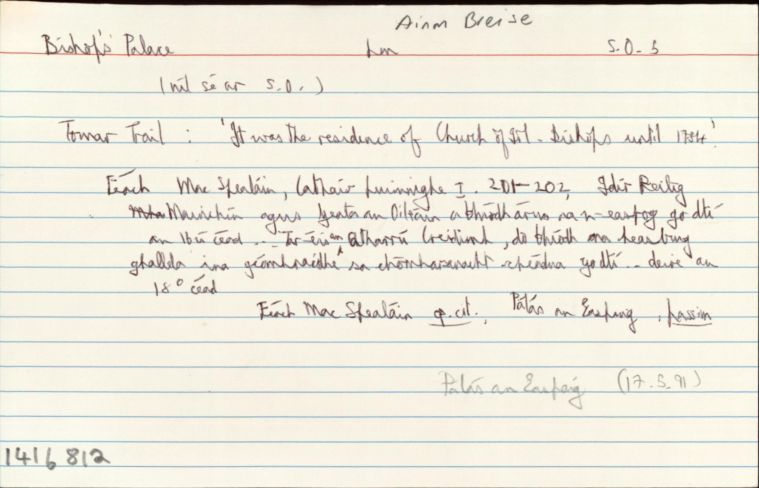 Ainm Breise
Bishop's Palace Lm S.O. 5
(níl sé ar S.O.)
Tomar Trail : 'It was the residence of Church of Irl. Bishops until 1784'.
Féach Mac Spealáin, Cathair Luimnighe I. 201-202, Idir Reilig
Mainchín agus Geata an Oileáin a bhíodh árus na n-easpog go dtí
an 16ú céad ... Tar éis an Athharrú Creidimh, do bhíodh na heasbuig
ghallda ina gcomhnaidhe sa chomharsanacht chéadna go dtí .. deire an
18º céad
Féach Mac Spealáin op. cit., Pálás an Easpuig, passim
Pálás an Easpaig (17.5.91)
1416812